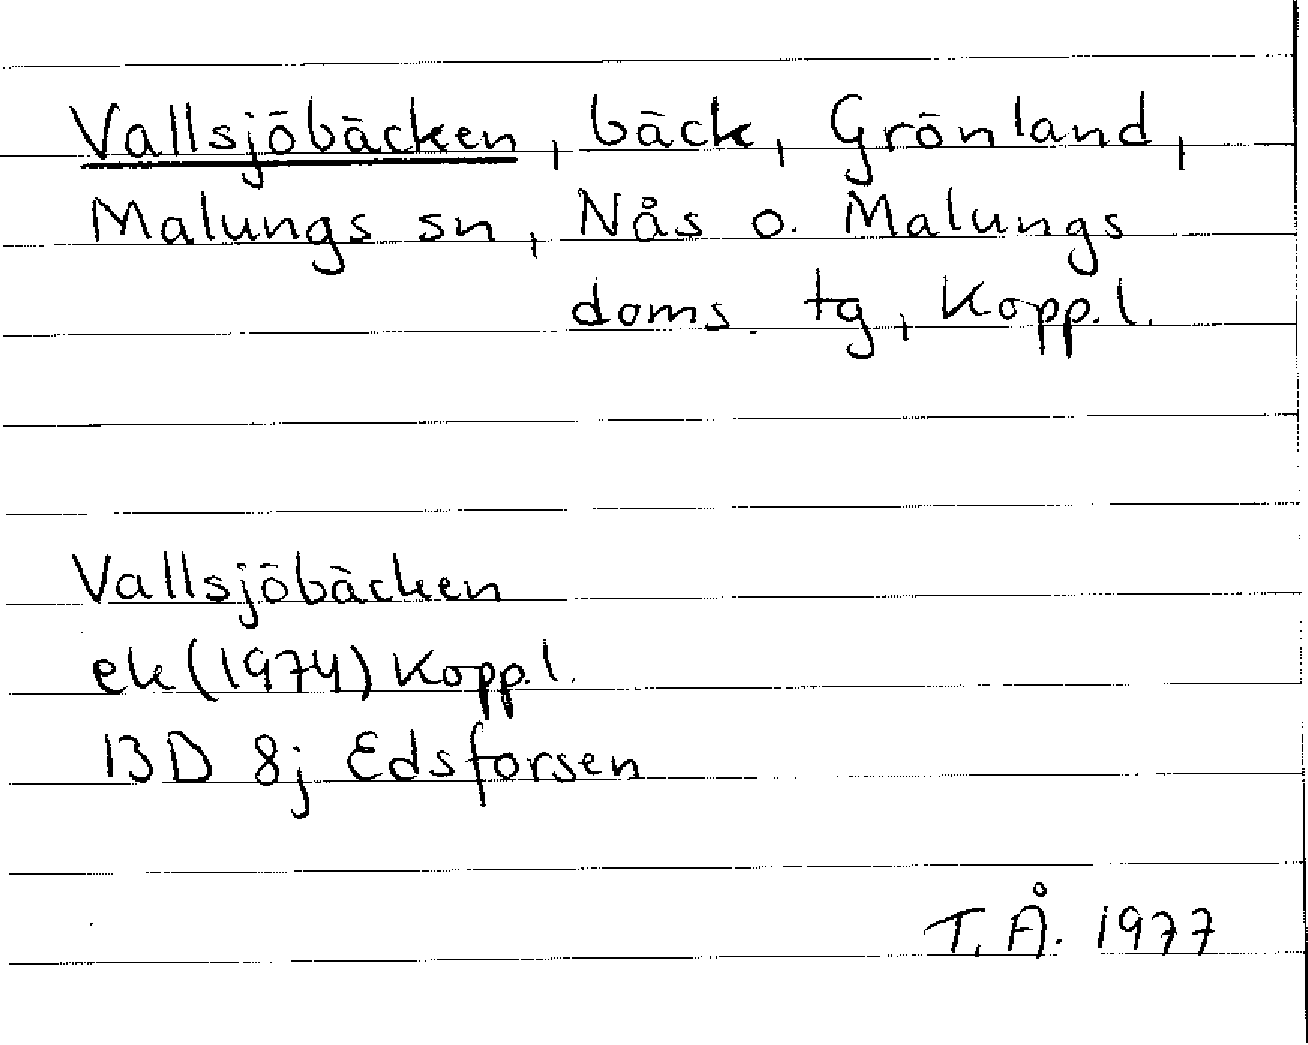 Vallsjöbäcken, bäck, Grönland,
Malungs sn, Nås o. Malungs
doms. tg, Kopp.l.
Vallsjöbäcken
ek (1974) Kopp.l.
13D 8j Edsforsen
T.Å. 1977